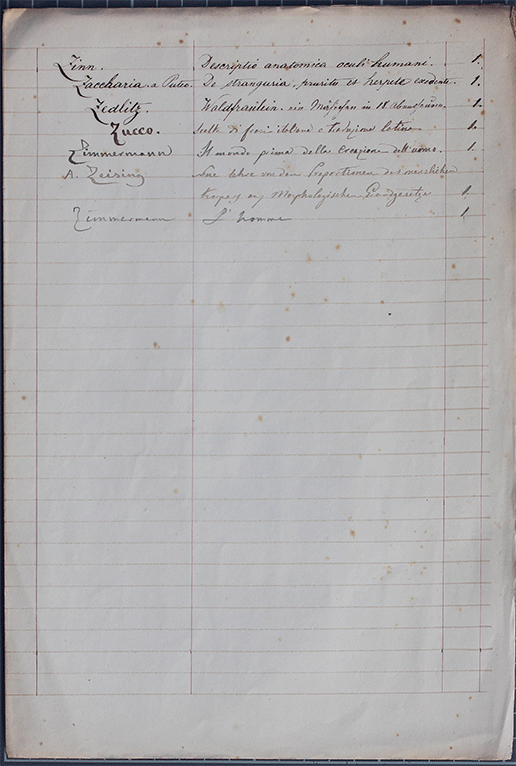 Zinn. Descriptio anatomica oculi humani. 1.
Zaccharia a Puteo. De stranguria, pruritu et herpete exedente. 1.
Zedlitz. Waldfräulein ein Mährchen in 18 Abenteuern. 1.
Zucco. Scelta di fiori 1.
Zimmermann Il mondo prima della Creazione dell'uomo. 1.
A. Zeising Neue Lehre von den Proportionen des menschlichen
Körpers Morphologischen Grundgesetze 1
Zimmermann L'homme 1